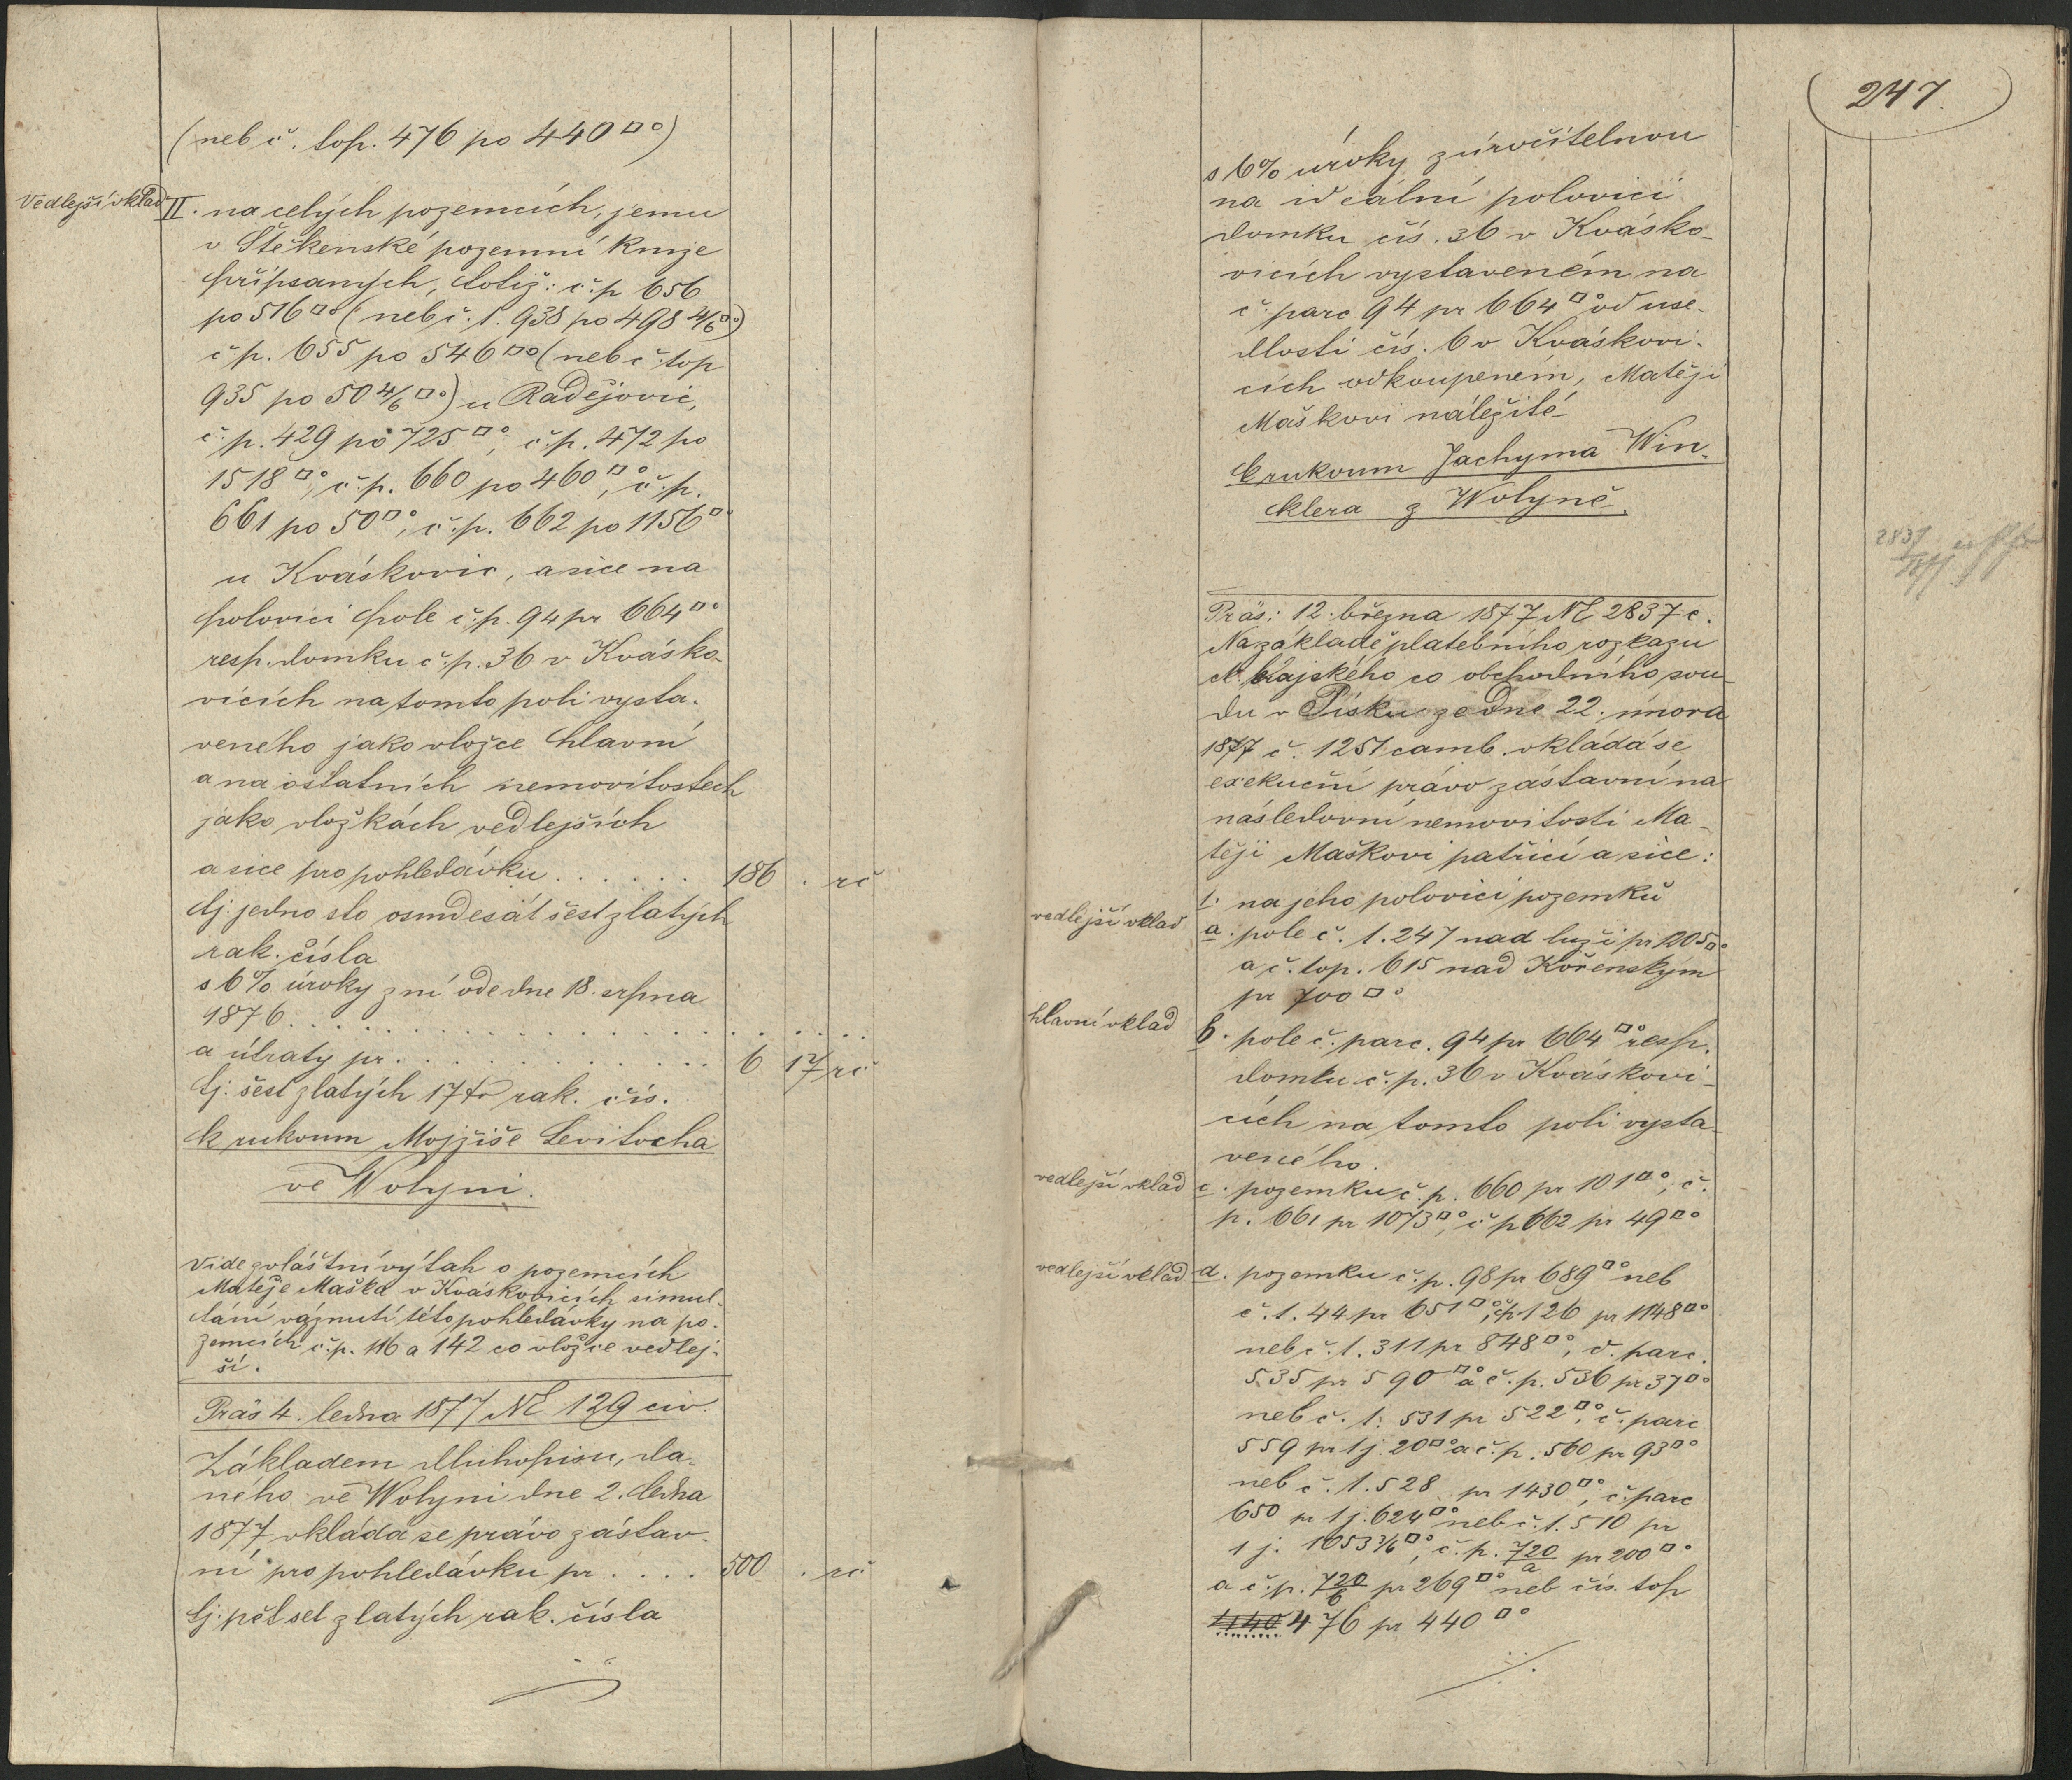 (neb č. top. 476 po 440 □°)
Vedlejší vklad
II. na celých pozemcích, jemu
v Štěkenské pozemní knize
připsaných, totiž: č. p 656
po 516 □° (neb č. t. 938 po 498 4/6 □°)
č. p. 655 po 546 □° (neb č. top
935 po 50 4/6 □°) u Radějovic,
č. p. 429 po 725 □°, č. p. 472 po
1518 □°, č. p. 660 po 460 □°, č. p.
661 po 50 □°, č. p. 662 po 1156 □°
u Kváskovic, a sice na
polovici pole č. p. 94 pr 664 □°
resp. domku č. p. 36 v Kvásko-
vicích na tomto poli vysta-
veného jako vložce hlavní
a na ostatních nemovitostech
jako vložkách vedlejších
a sice pro pohledávku . . . . . . 186 . rč
tj. jedno sto osmdesát šest zlatých
rak. čísla
s 6% úroky z ní ode dne 18. srpna
1876 . . . . . . . . . . . . . . . .
a útraty pr. . . . . . . . . . . 6 17 rč
tj. šest zlatých 17 kr rak. čís.
k rukoum Mojžíše Levitocha
ve Wolyni.
Vide zvláštní výtah o pozemcích
Matěje Maška v Kváskovicích simul-
tání váznutí této pohledávky na po-
zemcích č. p. 116 a 142 co vložce vedlej-
ší.
Präs 4. ledna 1877 NE 129 civ.
Základem dluhopisu, da-
ného ve Wolyni dne 2. ledna
1877, vkládá se právo zástav-
ní pro pohledávku pr . . . . 500 . rč
tj. pět set zlatých rak. čísla
247.
s 6% úroky zúročitelnou
na ideální polovici
domku čís. 36 v Kvásko-
vicích vystaveném na
č. parc 94 pr 664 □° od use-
dlosti čís. 6 v Kváskovi-
cích odkoupeném, Matěji
Maškovi náležité
k rukoum Jachyma Win-
klera z Wolyně.
2837
1877
Präs: 12. března 1877 NE 2837 c.
Na základě platebního rozkazu
c. k. krajského co obchodního sou-
du v Písku ze dne 22. února
1877 č. 1251 camb. vkládá se
exekuční právo zástavní na
následovní nemovitosti Ma-
těji Maškovi patřící a sice:
1. na jeho polovici pozemků
vedlejší vklad
a. pole č. t. 247 nad luží pr 1205 □°
a č. top. 615 nad Kořenským
pr 700 □°
hlavní vklad
b. pole č. parc. 94 pr 664 □° resp.
domku č. p. 36 v Kváskovi-
cích na tomto poli vysta-
veného.
vedlejší vklad
c. pozemku č. p. 660 pr 101 □°, č.
p. 661 pr 1073 □°, č p 662 pr 49 □°
vedlejší vklad
d. pozemku č. p. 98 pr 689 □° neb
č. t. 44 pr 651 □°, č p 126 pr 1148 □°
neb č. t. 311 pr 848 □°, č. parc.
535 pr 590 □° a č. p. 536 pr 37 □°
neb č. t. 531 pr 522 □°, č. parc
559 pr 1 j. 20 □° a č. p. 560 pr 93 □°
neb č. t. 528 pr 1430 □°, č. parc
650 pr 1 j. 624 □° neb č. t. 510 pr
1 j. 1053 3/6 □°, č. p. 720/a pr 200 □°
a č. p. 720/b pr 269 □° neb čís. top
1140 476 pr 440 □°